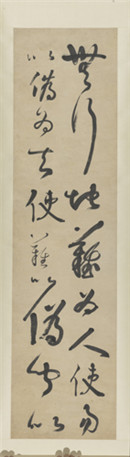 無行地難為人使易
以偽為天使難以偽聞以